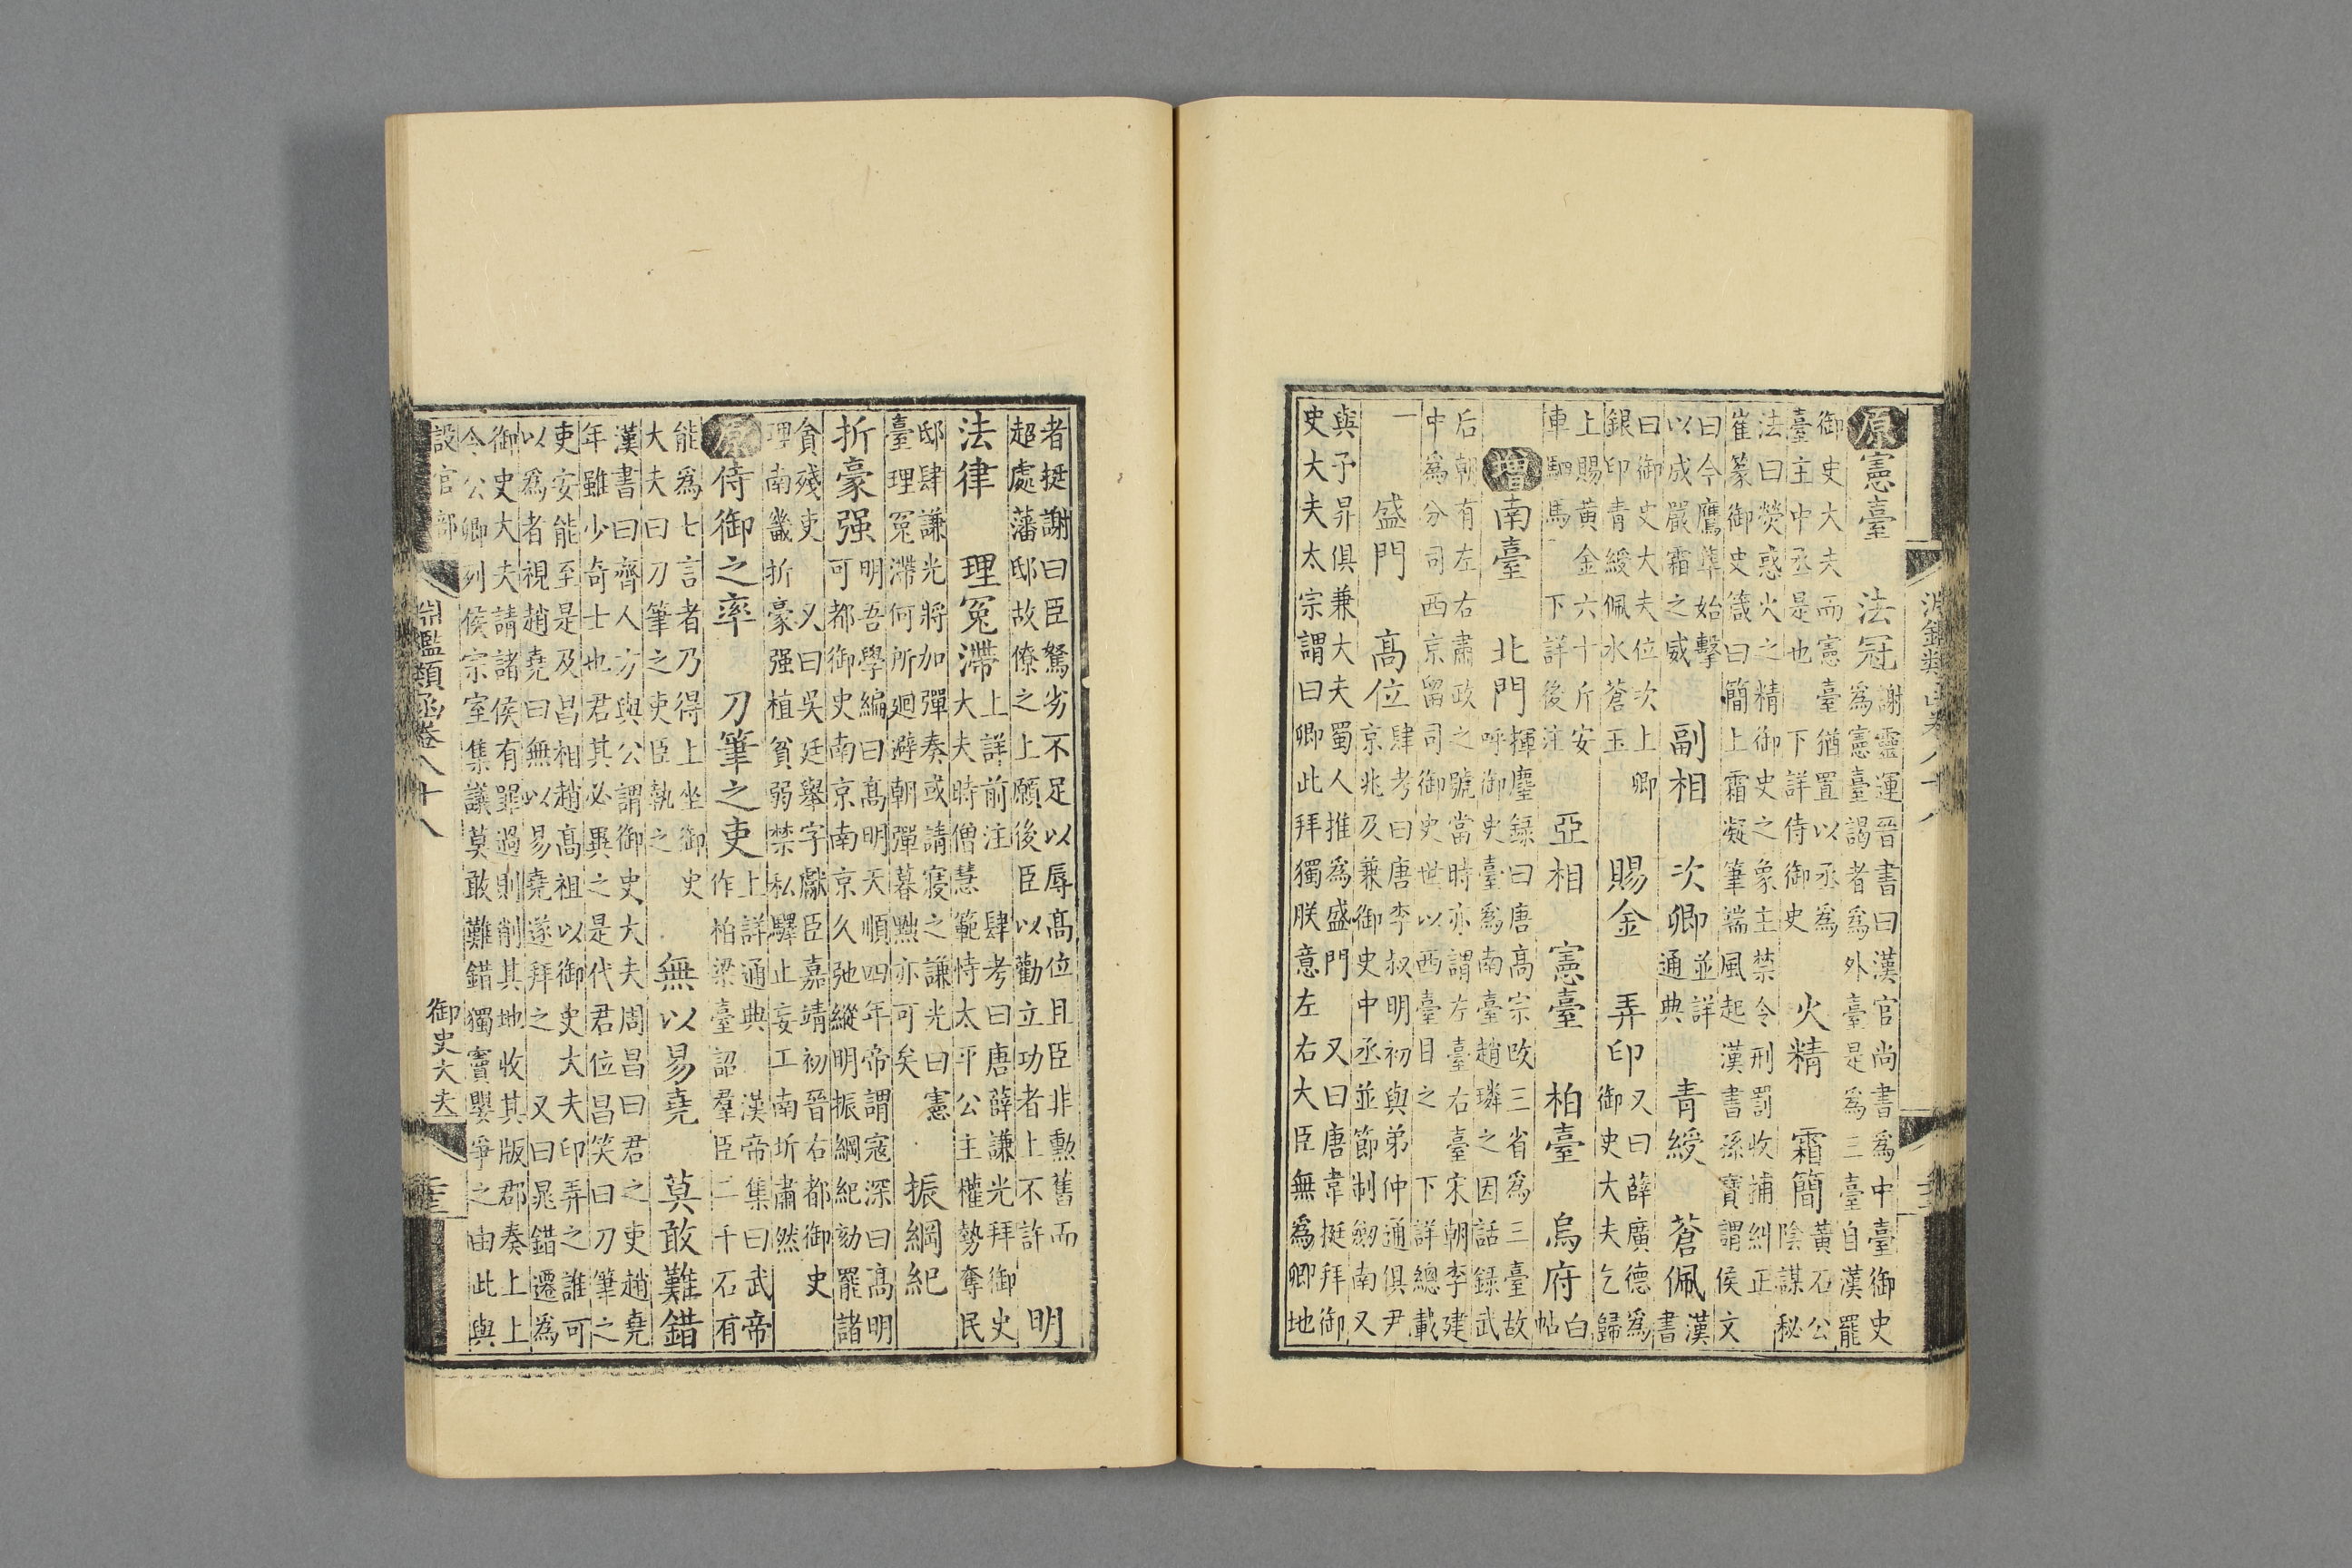 原憲臺 法冠 謝靈運晉書曰漢官尚書爲中臺御史
爲憲臺謁者爲外臺是爲三臺自漢罷
御史大夫而憲臺猶置以丞爲
臺主中丞是也 下詳侍御史
火精 霜簡 黃石公
陰謀秘
法曰熒惑火之精御史之象主禁令刑罰收捕糾正
崔篆御史箴曰簡上霜凝筆端風起漢書孫寶謂侯文
曰今鷹隼始擊
以成嚴霜之威
副相 次卿 並詳
通典
青綬 蒼佩 漢
書
曰御史大夫位次上卿
銀印青綬佩水蒼玉
賜金 弄印 又曰薛廣德爲
御史大夫乞歸
上賜黃金六十斤安
車駟馬 下詳後注
亞相 憲臺 柏臺 烏府 白
帖
增南臺 北門 揮麈錄曰唐高宗改三省爲三臺故
呼御史臺爲南臺趙璘之因話錄武
后朝有左右肅政之號當時亦謂左臺右臺宋朝李建
中爲分司西京留司御史世以西臺目之 下詳總載
一 盛門 高位 肆考曰唐李叔明初與弟仲通俱尹
京兆及兼御史中丞並節制劒南又
與予昇俱兼大夫蜀人推爲盛門 又曰唐韋挺拜御
史大夫太宗謂曰卿此拜獨朕意左右大臣無爲卿地
者挺謝曰臣駑劣不足以辱高位且臣非勳舊而
超處藩邸故僚之上願後臣以勸立功者上不許
明
法律 理冤滯 上詳前注 肆考曰唐薛謙光拜御史
大夫時僧慧範恃太平公主權勢奪民
邸肆謙光將加彈奏或請寢之謙光曰憲
臺理冤滯何所廻避朝彈暮黜亦可矣
振綱紀
折豪强 明吾學編曰高明天順四年帝謂寇深曰高明
可都御史南京南京久弛縱明振綱紀劾罷諸
貪殘吏 又曰吳廷舉字獻臣嘉靖初晉右都御史
理南畿折豪强植貧弱禁私驛止妄工南圻肅然
原侍御之率 刀筆之吏 上詳通典 漢帝集曰武帝
作柏梁臺詔羣臣二千石有
能爲七言者乃得上坐御史
大夫曰刀筆之吏臣執之
無以易堯 莫敢難錯
漢書曰齊人方與公謂御史大夫周昌曰君之吏趙堯
年雖少奇士也君其必異之是代君位昌笑曰刀筆之
吏安能至是及昌相趙高祖以御史大夫印弄之誰可
以爲者視趙堯曰無以易堯遂拜之 又曰晁錯遷爲
御史大夫請諸侯有罪過則削其地收其版郡奏上上
令公卿列侯宗室集議莫敢難錯獨竇嬰爭之由此與
設官部 淵鑑類函卷八十八 御史大夫一